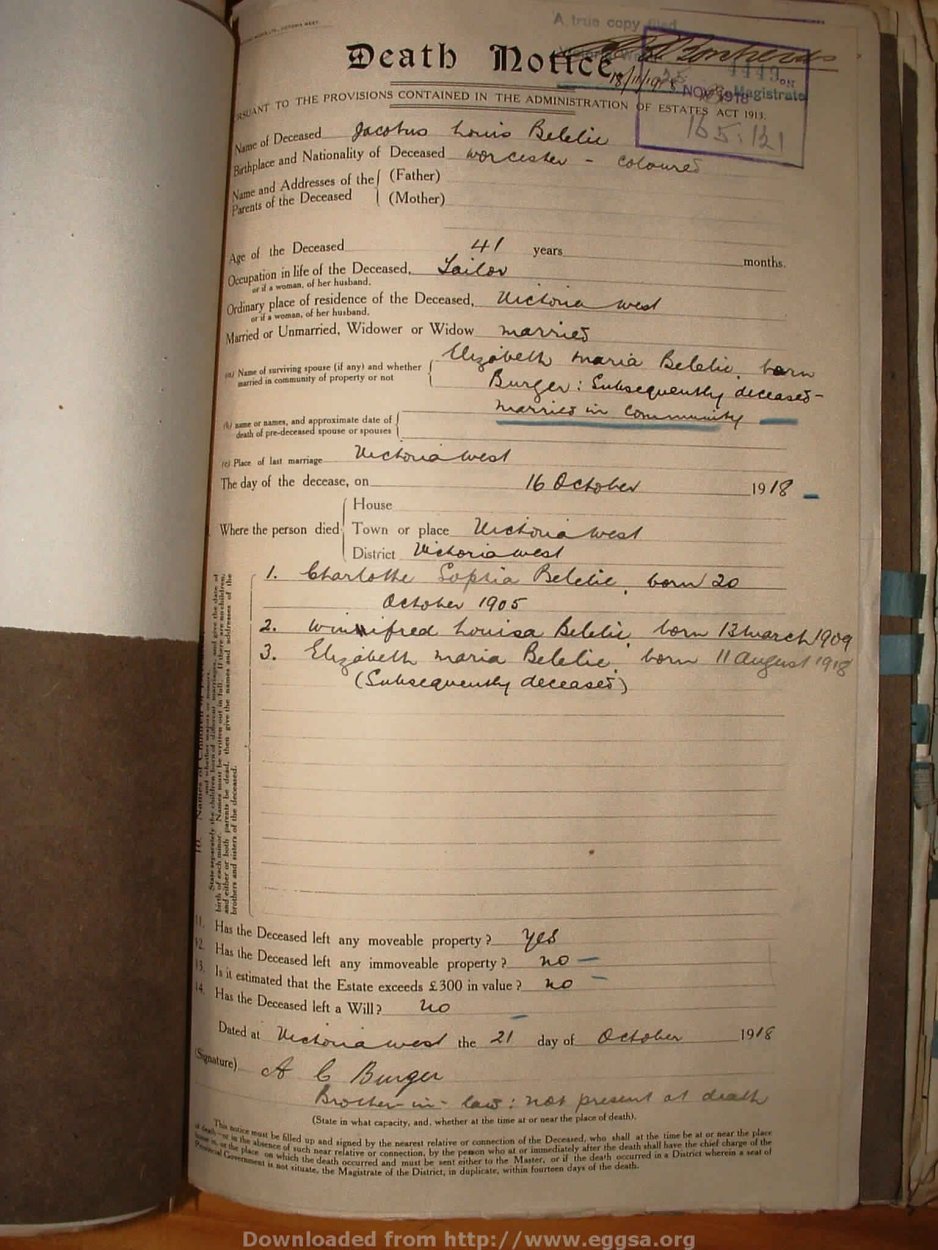 A true copy filed
Death Notice
18/11/1918
NOV 1918
Magistrate
165:121
PURSUANT TO THE PROVISIONS CONTAINED IN THE ADMINISTRATION OF ESTATES ACT 1913.
Name of Deceased Jacobus Louis Belelie
Birthplace and Nationality of Deceased Worcester - Coloured
Name and Addresses of the Parents of the Deceased (Father)
(Mother)
Age of the Deceased 41 years months.
Occupation in life of the Deceased, Tailor
or if a woman, of her husband.
Ordinary place of residence of the Deceased, Victoria West
or if a woman, of her husband.
Married or Unmarried, Widower or Widow married
Elizabeth Maria Belelie, born
(a) Name of surviving spouse (if any) and whether married in community of property or not Burger: Subsequently deceased -
married in Community
(b) name or names, and approximate date of death of pre-deceased spouse or spouses
(c) Place of last marriage Victoria West
The day of the decease, on 16 October 1918
House
Where the person died Town or place Victoria West
District Victoria West
1. Charlotte Sophia Belelie, born 20
October 1905
2. Winnifred Louisa Belelie born 13 March 1909
3. Elizabeth Maria Belelie, born 11 August 1918
(Subsequently deceased)
10. Names of Children of
State separately the children born of different marriages, and give the date of
birth of each minor. Names must be written out in full. If there are no children,
and either or both parents be dead, then give the names and addresses of the
brothers and sisters of the deceased.
11. Has the Deceased left any moveable property? Yes
12. Has the Deceased left any immoveable property? no
13. Is it estimated that the Estate exceeds £300 in value? no
14. Has the Deceased left a Will? no
Dated at Victoria West the 21 day of October 1918
(Signature) A C Burger
Brother-in-law: not present at death
(State in what capacity, and, whether at the time at or near the place of death).
This notice must be filled up and signed by the nearest relative or connection of the Deceased, who shall at the time be at or near the place
of death—or in the absence of such near relative or connection, by the person who at or immediately after the death shall have the chief charge of the
house in, or the place on which the death occurred and must be sent either to the Master, or if the death occurred in a District wherein a seat of
Provincial Government is not situate, the Magistrate of the District, in duplicate, within fourteen days of the death.
Downloaded from http://www.eggsa.org